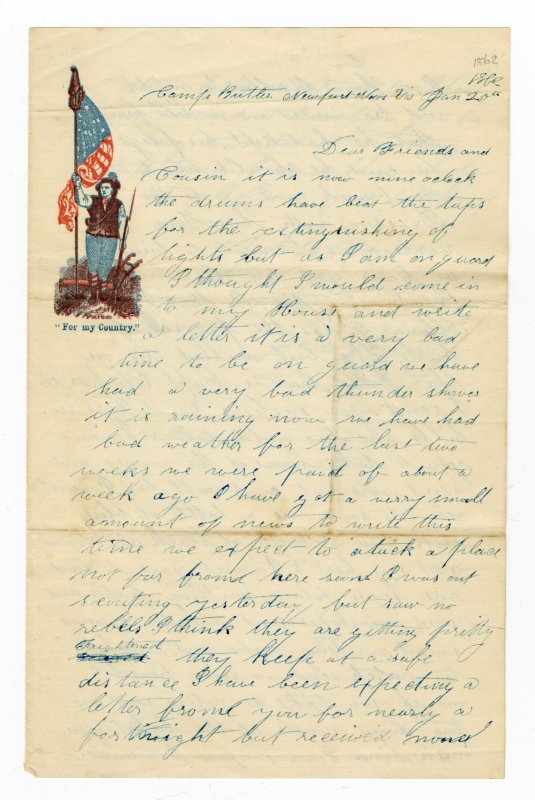 1862
1862
Camp Butler Newport News Va Jan 20th
Dear Friends and
Cousin it is now nine oclock
the drums have beat the taps
for the extinguishing of
lights but as I am on guard
I thought I would come in
to my House and write
a letter it is a very bad
time to be on guard we have
had a very bad thunder shower
it is raining now we have had
bad weather for the last two
weeks we were paid of about a
week ago I have got a verry small
amount of news to write this
time we expect to atack a place
not far fromd here soon I was out
scouting yesterday but saw no
rebels I think they are gitting pretty
frightened they keep at a safe
distance I have been expecting a
letter fromd you for nearly a
fortnight but received none
"For my Country."